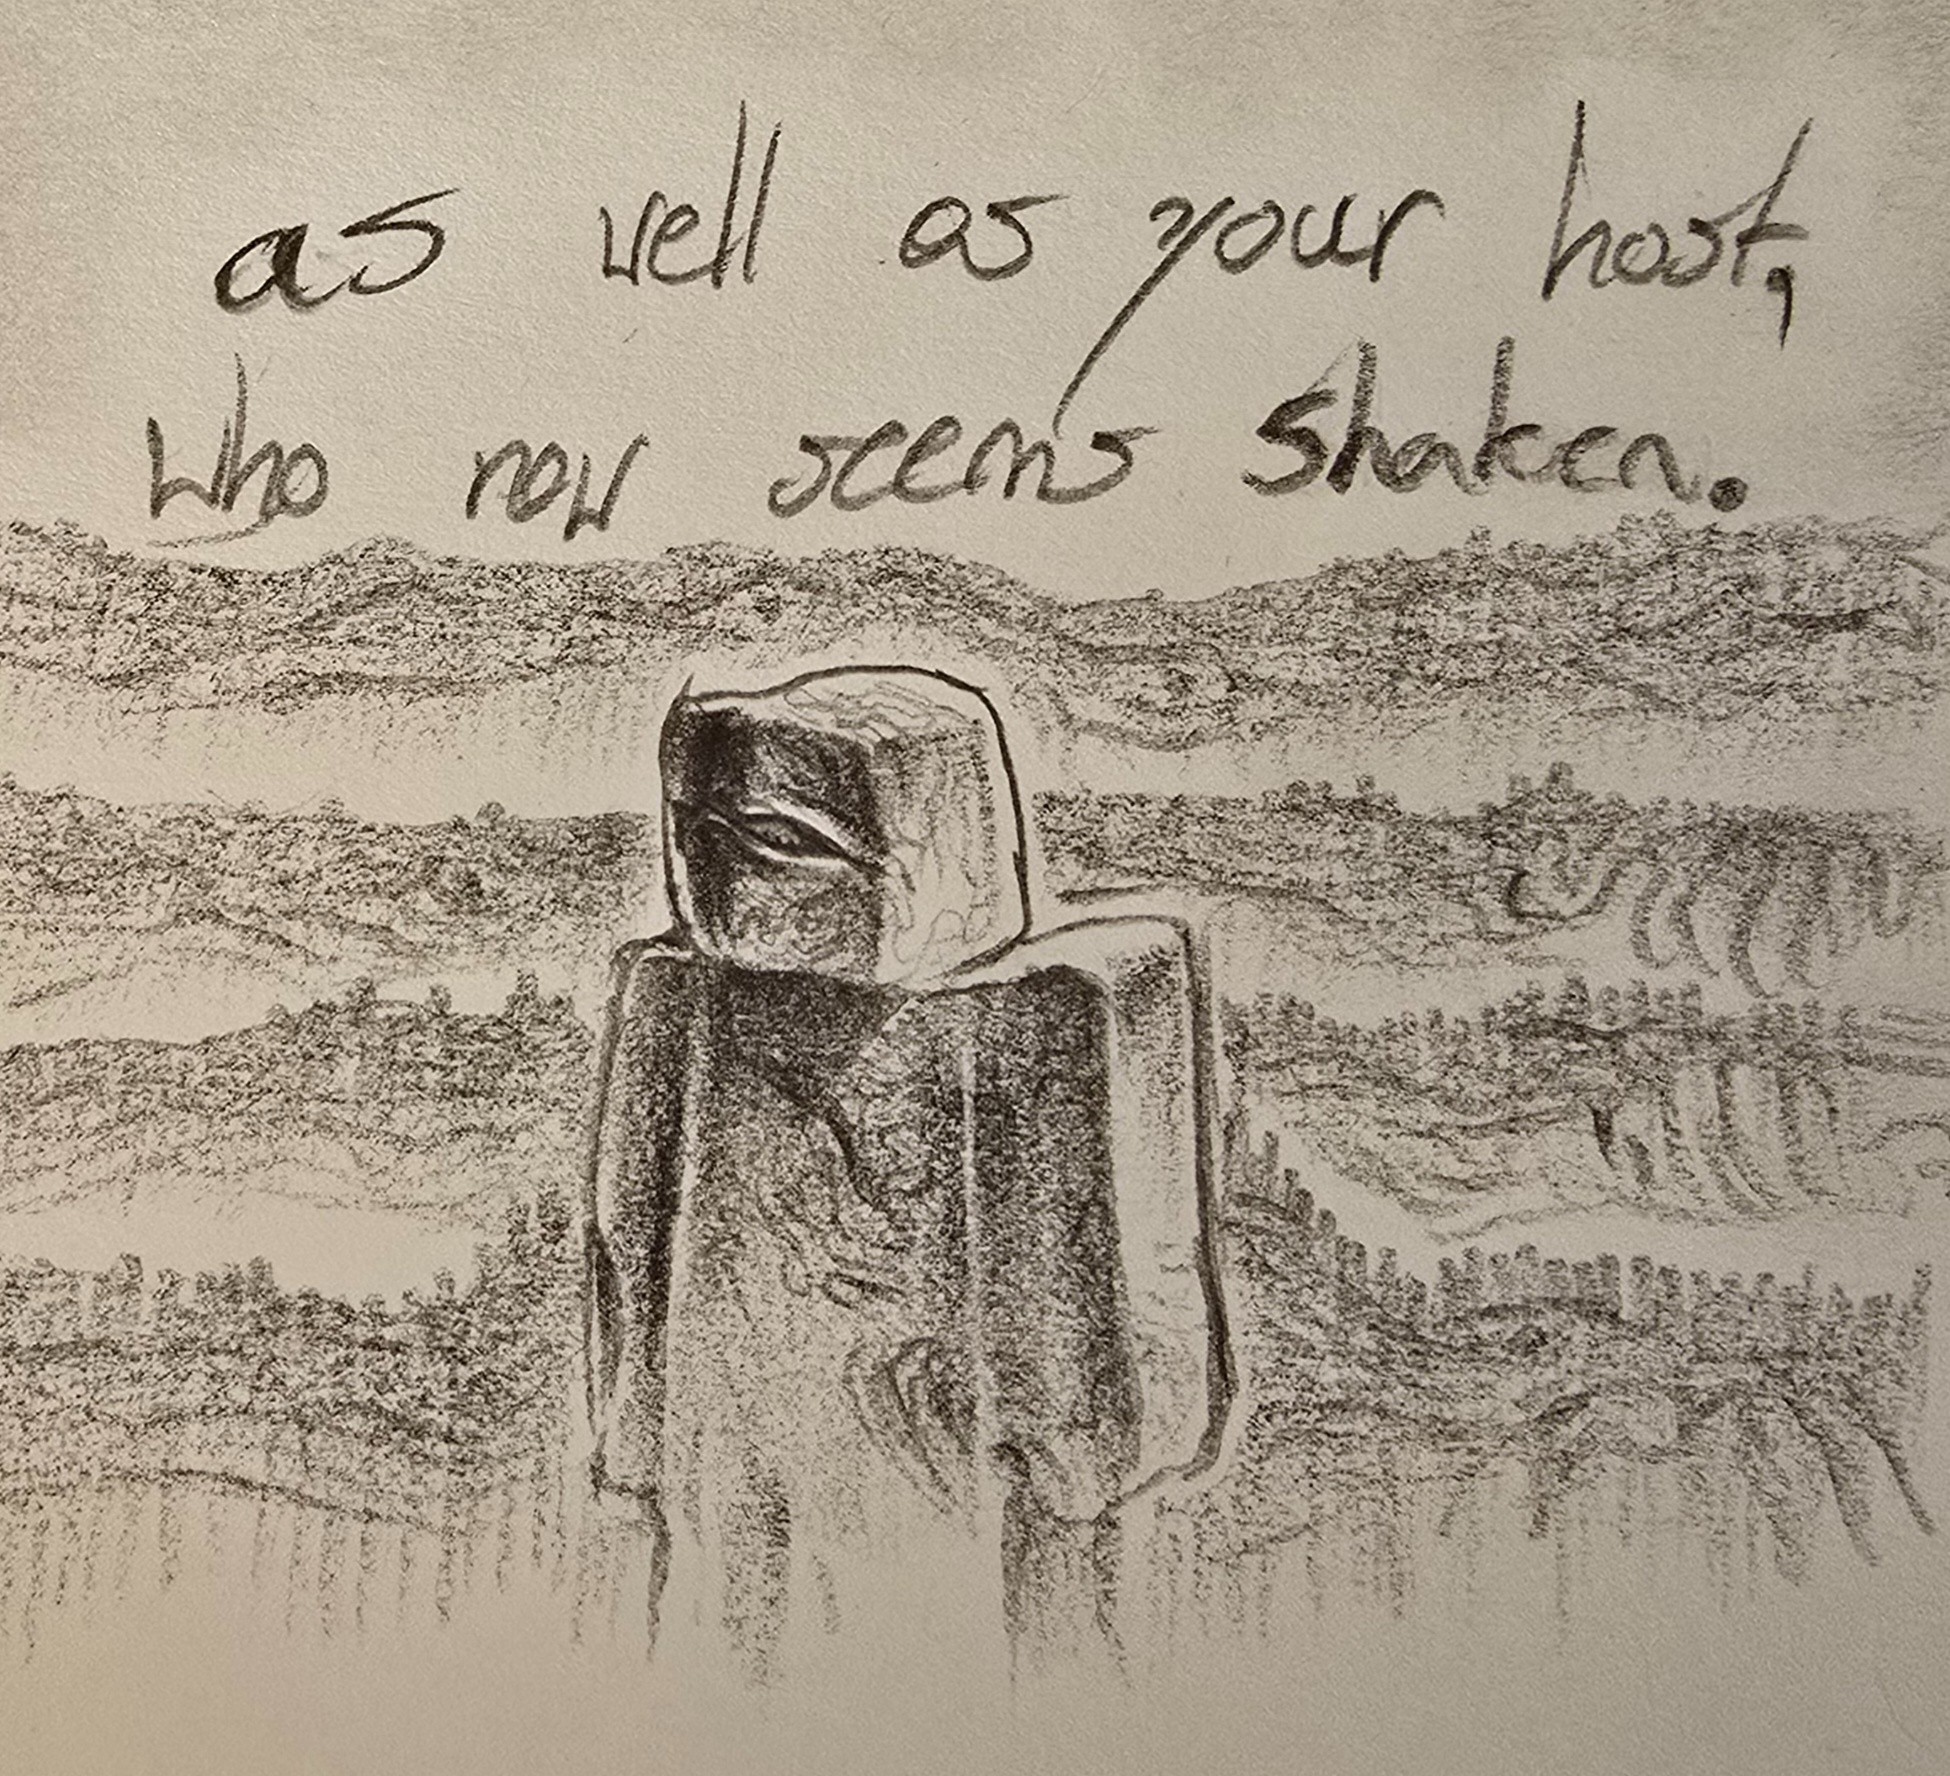 as well as your host,
who now seems shaken.